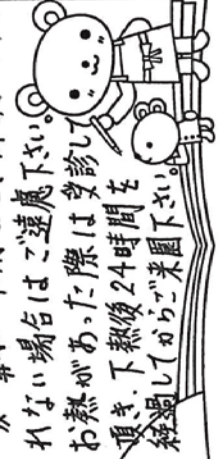 れない場合はご遠慮下さい。
お熱があった際は受診して
頂き、下熱後24時間を
経過してからご来園下さい。